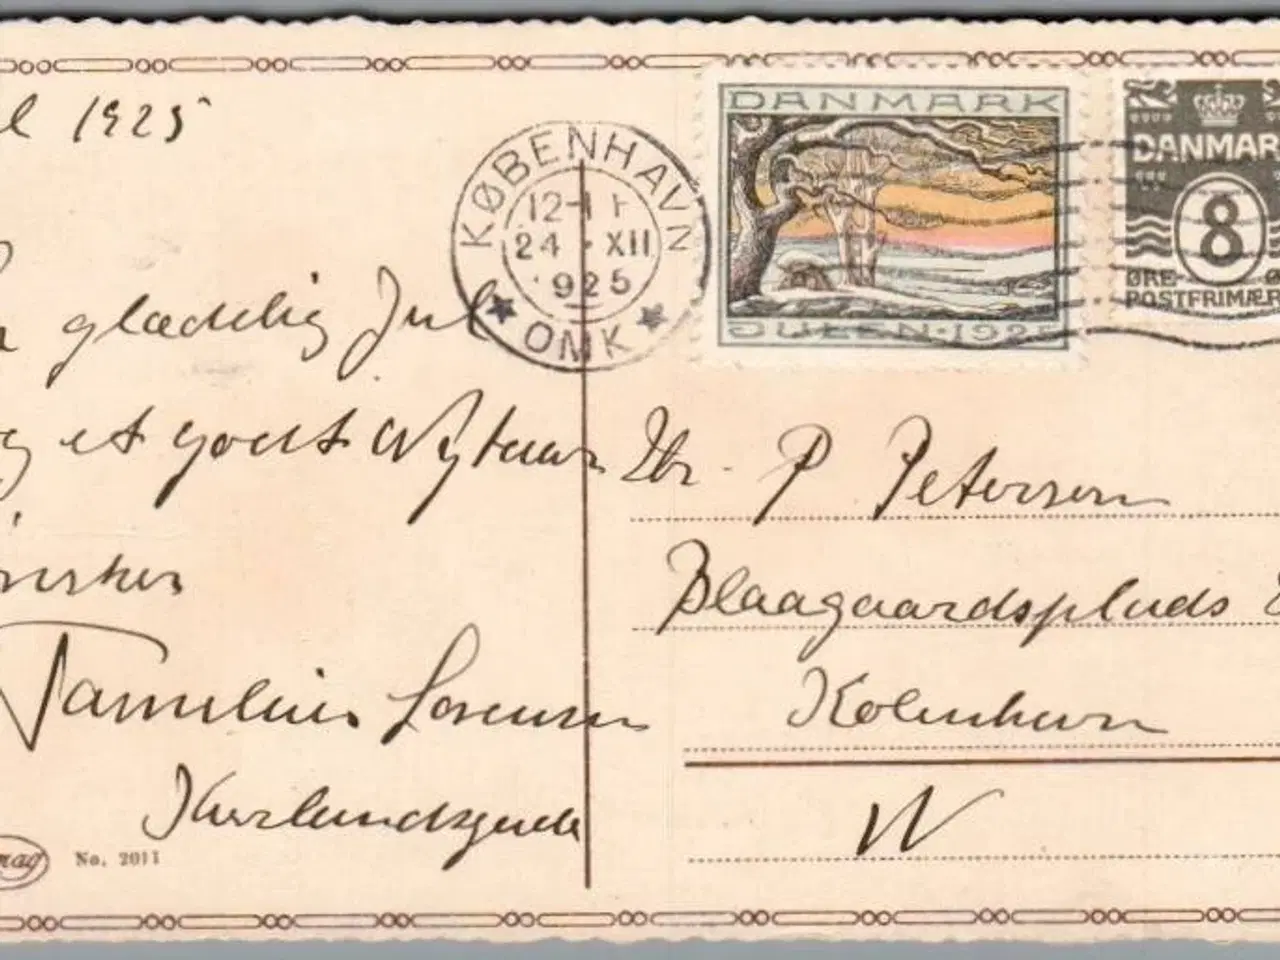 l 1925
glædelig Jul
og et godt Nytaar
ønsker
Familien Sorensen
Kurlandsgade
No. 2011
KØBENHAVN
12-1 F
24 · XII
1925
OMK
DANMARK
JULEN · 1925
DANMAR
8
ØRE
POSTFRIMÆR
Hr. P Petersen
Blaagaardsplads
København
N